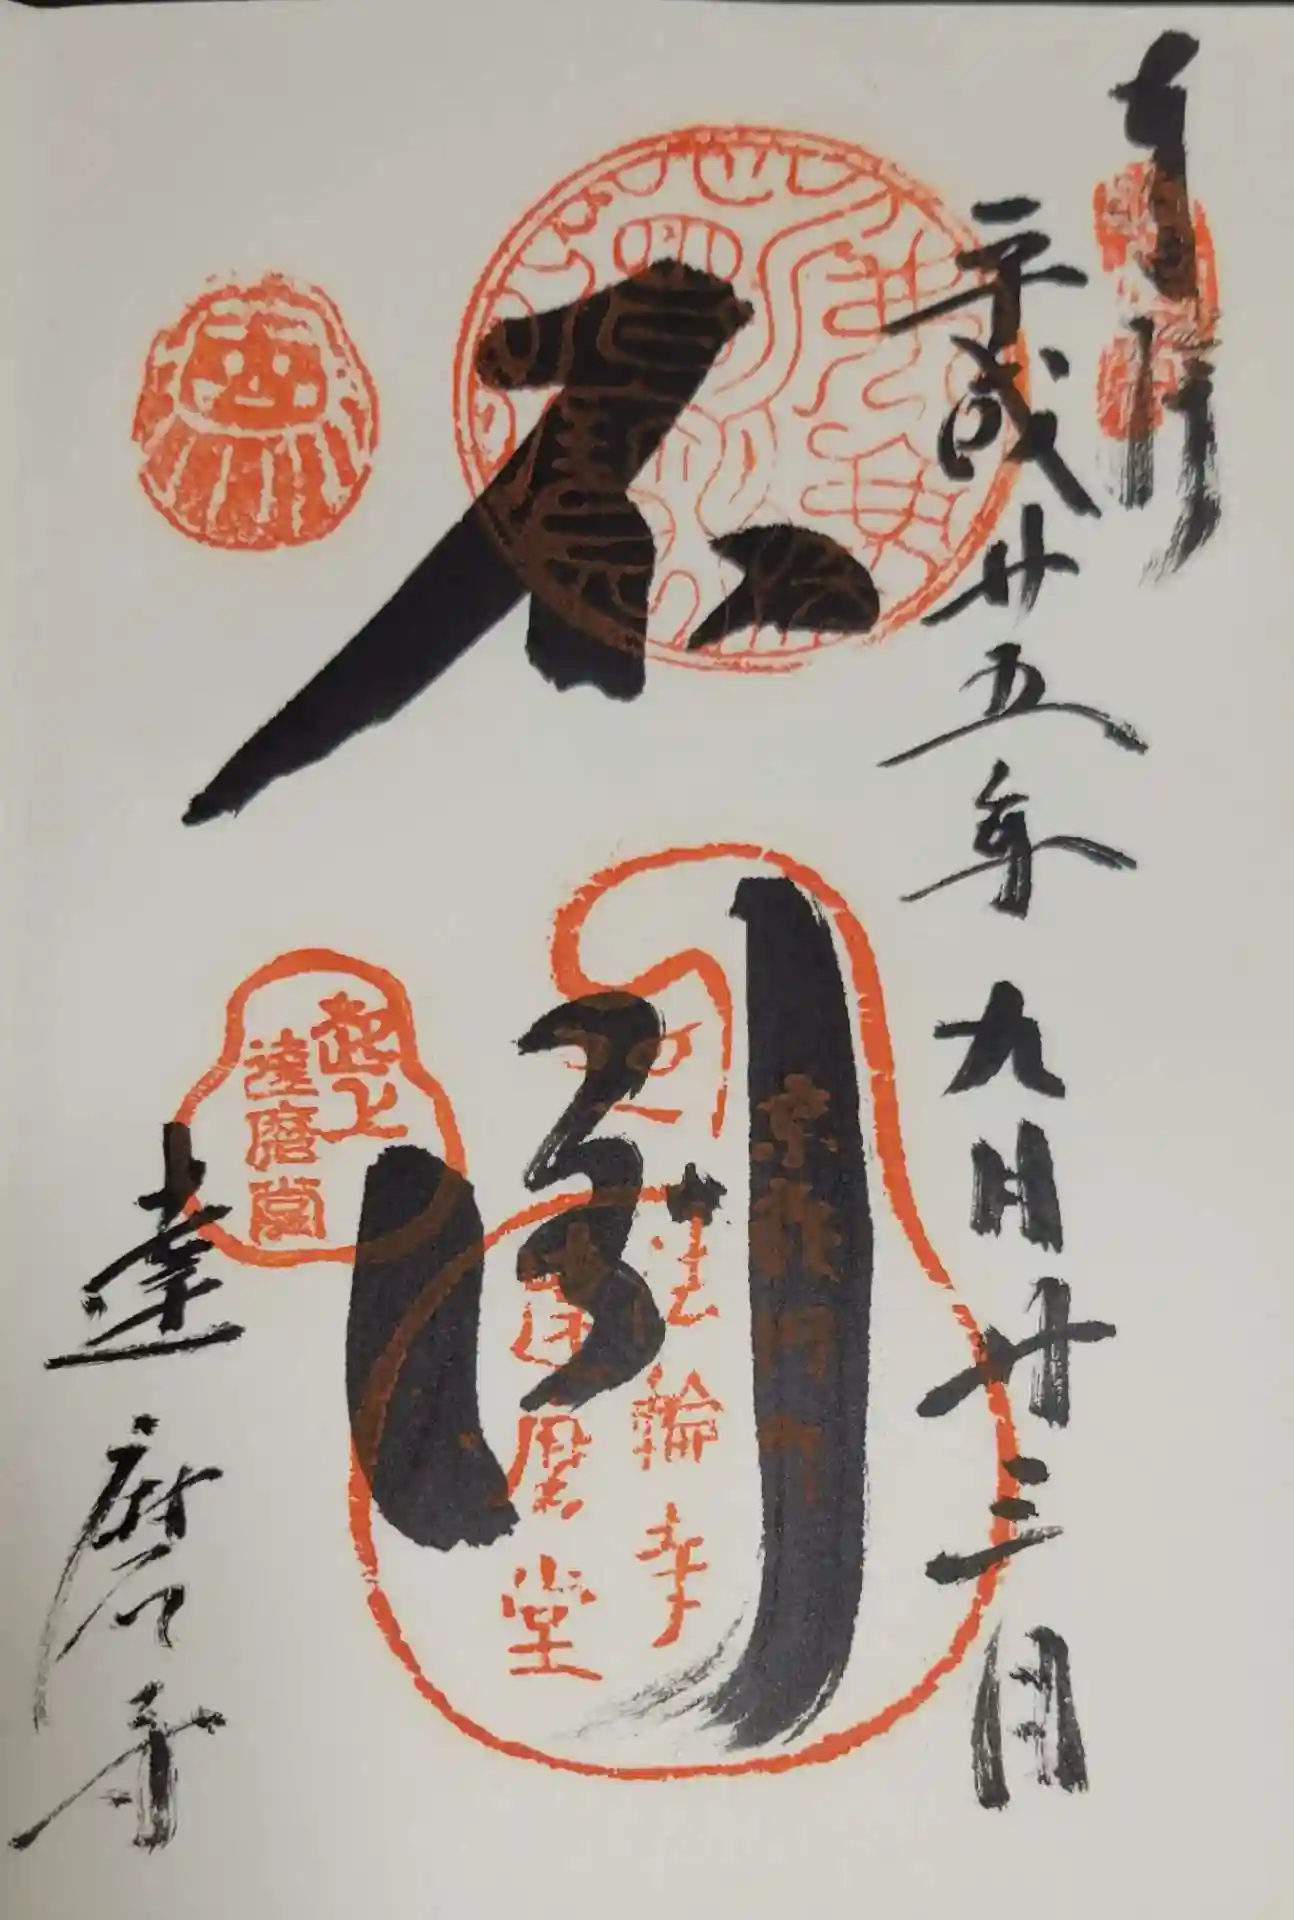 奉拝
平成廿五年九月廿三日
不倒
法輪寺
達磨堂
起上
達磨堂
達磨寺